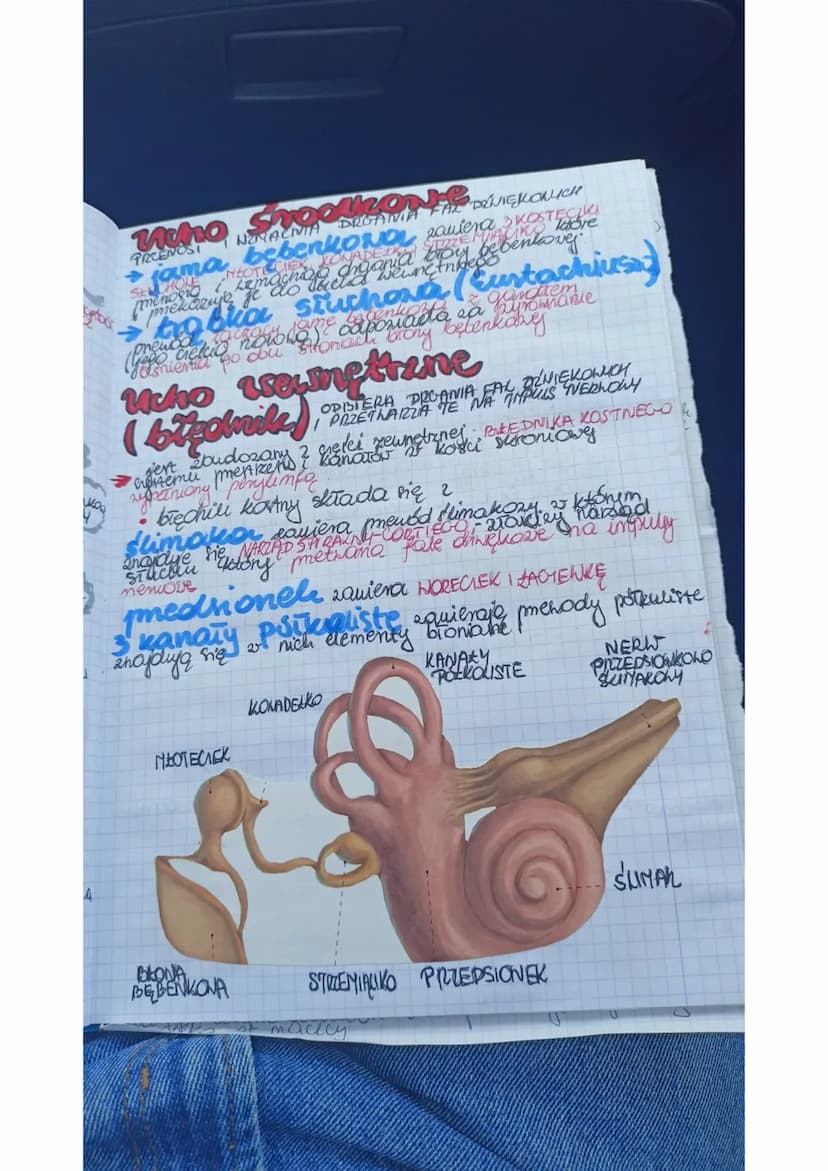 Ucho Środkowe
PRZENOSI I WZMACNIA DRGANIA FAL DŹWIĘKOWYCH
→ jama bębenkowa zawiera 3 KOSTECZKI
SŁUCHOWE MŁOTECZEK, KOWADEŁKO, STRZEMIĄCZKO które
przenoszą i wzmacniają drgania błony bębenkowej
i przekazują je do ucha wewnętrznego
→ trąbka słuchowa (Eustachiusza)
przewód łączący jamę bębenkową z gardłem
(jego częścią nosową) odpowiada za wyrównanie
ciśnienia po obu stronach błony bębenkowej
Ucho wewnętrzne
(błędnik), ODBIERA DRGANIA FAL DŹWIĘKOWYCH
I PRZETWARZA TE NA IMPULS NERWOWY
→ jest zbudowany z części zewnętrznej - BŁĘDNIKA KOSTNEGO
systemu przestrzeni i kanałów w kości skroniowej
wypełniony perylimfą
• błędnik kostny składa się z
ślimaka zawiera przewód ślimakowy, w którym
znajduje się NARZĄD SPIRALNY-CORTIEGO - właściwy narząd
słuchu, który przetwarza fale dźwiękowe na impulsy
nerwowe
przedsionek zawiera WORECZEK I ŁAGIEWKĘ
3 kanały półkuliste zawierają przewody półkuliste
znajdują się w nich elementy błoniane
KANAŁY
PÓŁKOLISTE
NERW
PRZEDSIONKOWO
ŚLIMAKOWY
KOWADEŁKO
MŁOTECZEK
ŚLIMAK
BŁONA
BĘBENKOWA
STRZEMIĄCZKO
PRZEDSIONEK